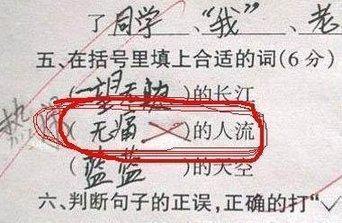 了同学、“我”、老
五、在括号里填上合适的词(6分)
(一望无边)的长江
(无痛)的人流
(蓝蓝)的天空
六、判断句子的正误,正确的打“✓